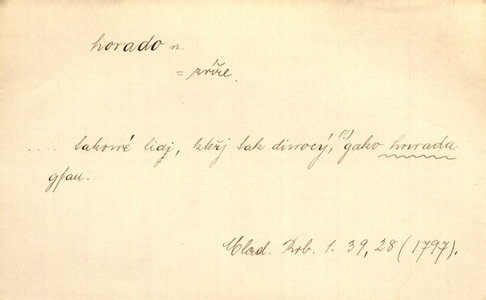 horado n.
= zvíře.
.... takowé lidj, kteřj tak diwocý, (!) gako howada
gsau.
Mlad. Zrb. 1. 39, 28 (1797).